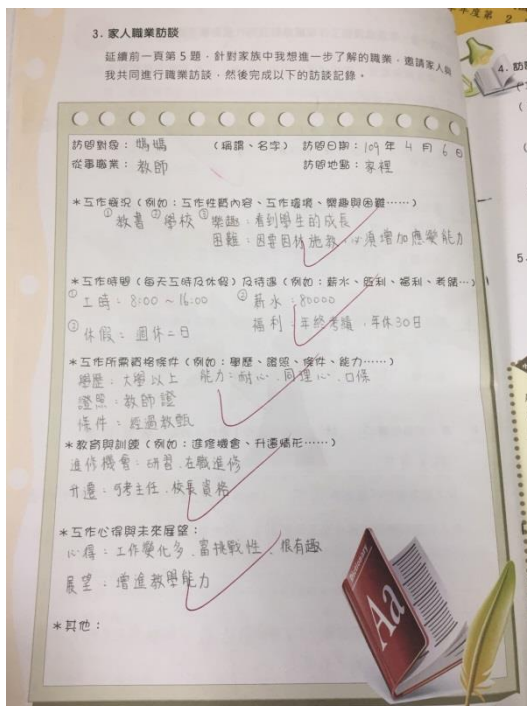 年度第 2
3. 家人職業訪談
延續前一頁第 5 題，針對家族中我想進一步了解的職業，邀請家人與
我共同進行職業訪談，然後完成以下的訪談記錄。
訪問對象：媽媽 （稱謂、名字） 訪問日期：109 年 4 月 6 日
從事職業：教師 訪問地點：家裡
＊工作概況（例如：工作性質內容、工作環境、樂趣與困難……）
①教書 ②學校 ③樂趣：看到學生的成長
困難：因要因材施教，必須增加應變能力
＊工作時間（每天工時及休假）及待遇（例如：薪水、紅利、福利、考績…）
① 工時：8:00 ~ 16:00 ② 薪水：80000
③ 休假：週休二日 福利：年終考績、年休30日
＊工作所需資格條件（例如：學歷、證照、條件、能力……）
學歷：大學以上 能力：耐心、同理心、口條
證照：教師證
條件：經過教甄
＊教育與訓練（例如：進修機會、升遷情形……）
進修機會：研習、在職進修
升遷：可考主任、校長資格
＊工作心得與未來展望：
心得：工作變化多、富挑戰性、很有趣
展望：增進教學能力
＊其他：
DICTIONARY
Aa
4. 訪
5.